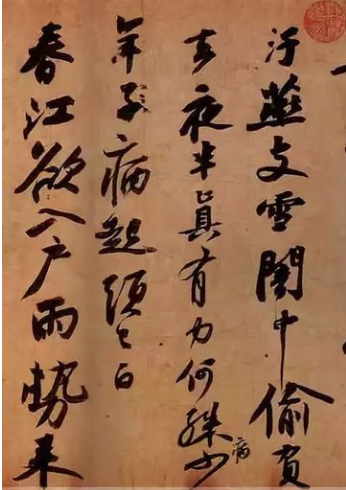 汙燕支雪闇中偷負
去夜半真有力何殊病少
年子病起頭已白
春江欲入戶雨勢来